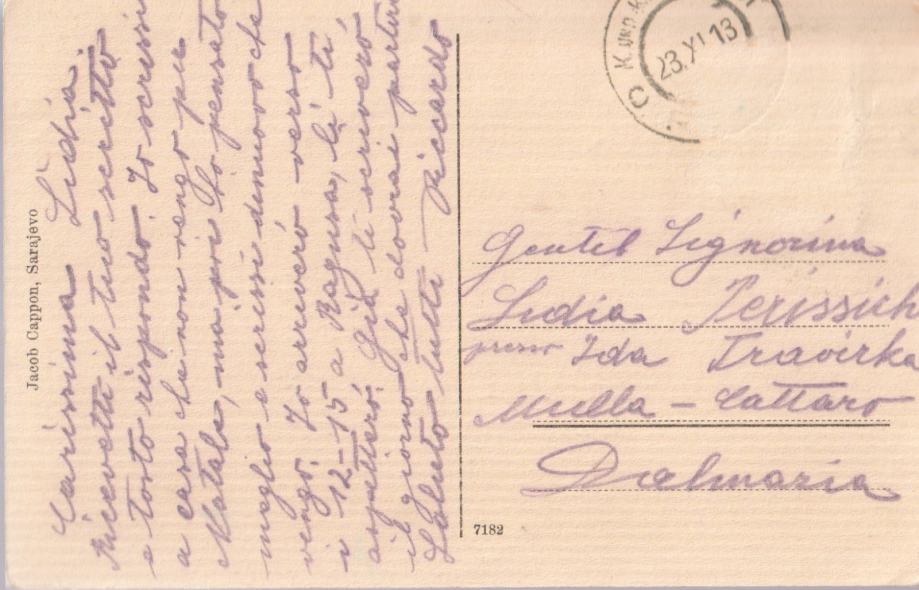 Carissima Lidia,
Ricevetti il tuo scritto
e tosto rispondo. Io scrissi
a casa che non vengo per
Natale, ma poi ho pensato
meglio e scrissi dinuovo che
vengo. Io arriveró verso
i 12-15 a Ragusa, lá ti
aspetteró. Giá ti scriveró
il giorno che dovrai partire
Saluto tutti Riccardo
Jacob Cappon, Sarajevo
K.UND.K.
23.XI.13
Gentil Signorina
Lidia Perissich
presso Ida Travirka
Mulla - Cattaro
Dalmazia
7182